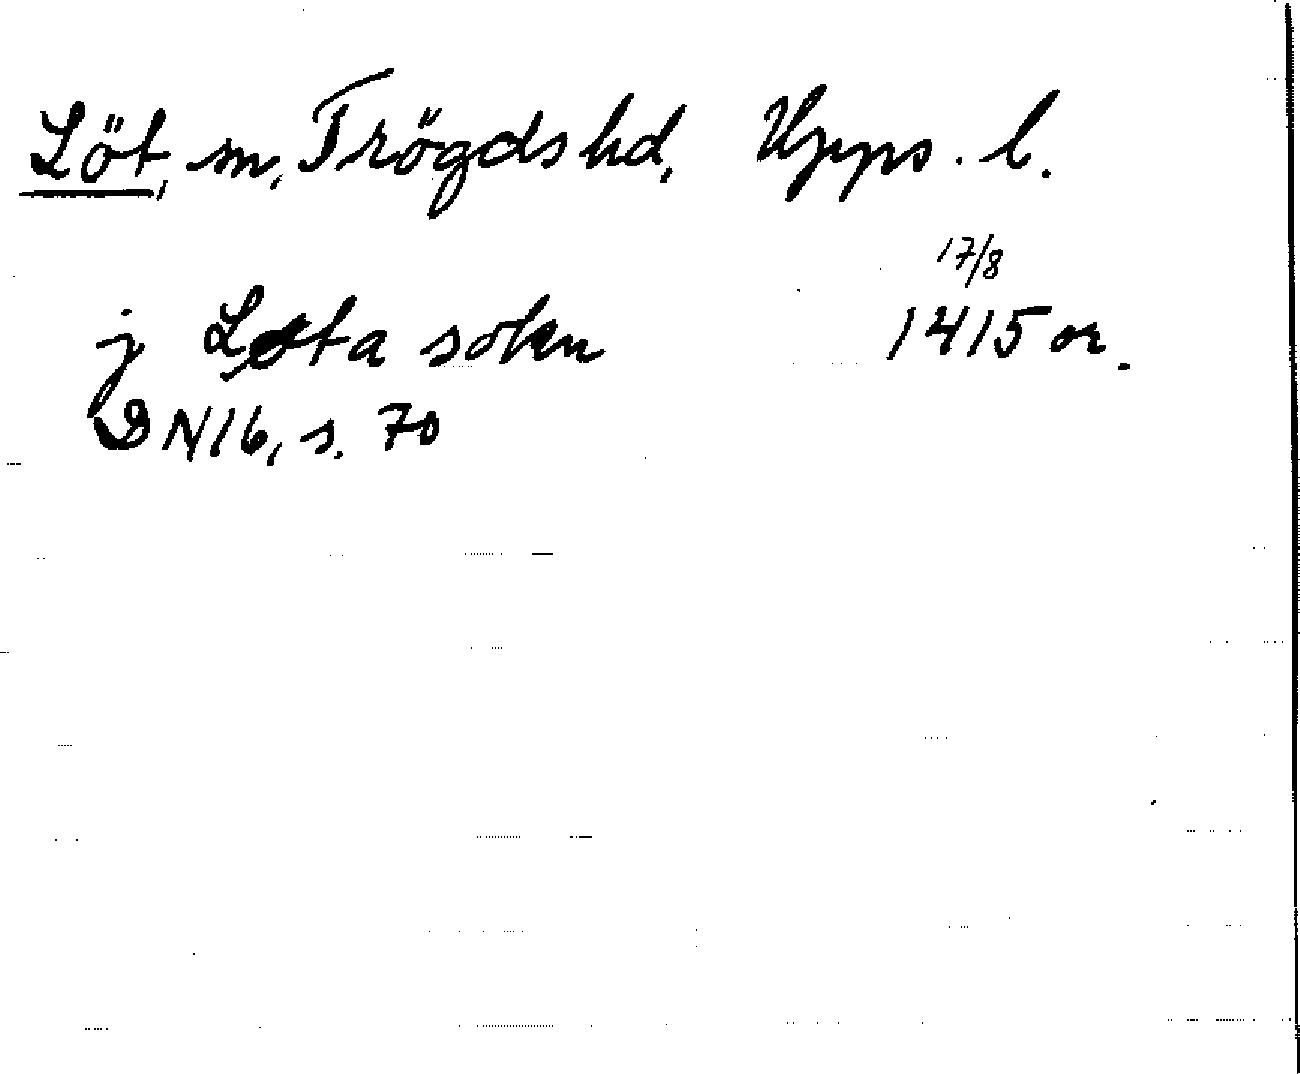 Löt, sn, Trögds hd, Upps. l.
17/8
j Løta sokn 1415 or.
DN16, s. 70